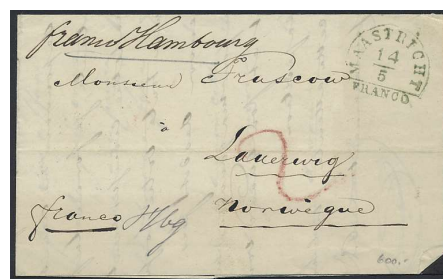 franco Hambourg
MAASTRICHT
14
5
FRANCO
Monsieur Frascow
à
Lauerwig
2
franco Hbg
Norwègue
600.-